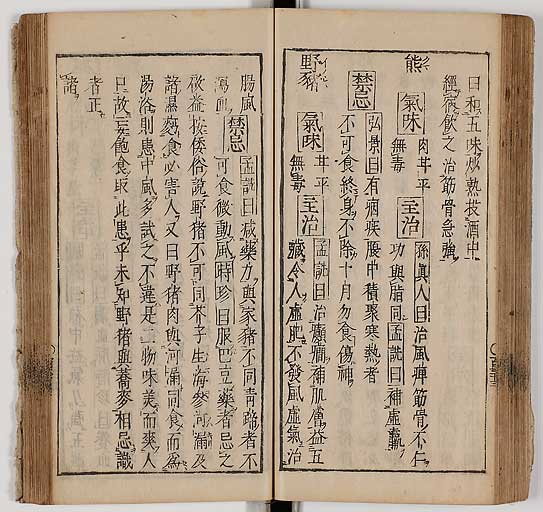 曰和五味炒熟投酒中
經宿飲之治筋骨急強
熊
氣味 肉甘平無毒 主治 孫眞人曰治風痺筋骨不仁功與脂同孟詵曰補虛羸
禁忌 弘景曰有痼疾腹中積聚寒熱者
不可食終身不除十月勿食傷神
野豬
氣味 甘平無毒 主治 孟詵曰治癲癇補肌膚益五
藏令人虛肥不發風虛氣治
腸風
瀉血 禁忌 孟詵曰減藥力與家豬不同青蹄者不
可食微動風時珍曰服巴豆藥者忌之
啟益按倭俗說野豬不可同芥子生海參河漏及
諸濕麪食必害人又曰野豬肉與河漏同食而為
湯浴則患中風多試之不違是二物味美而爽人
口故妄飽食取此患乎未知野豬與蕎麥相忌識
者正
諸